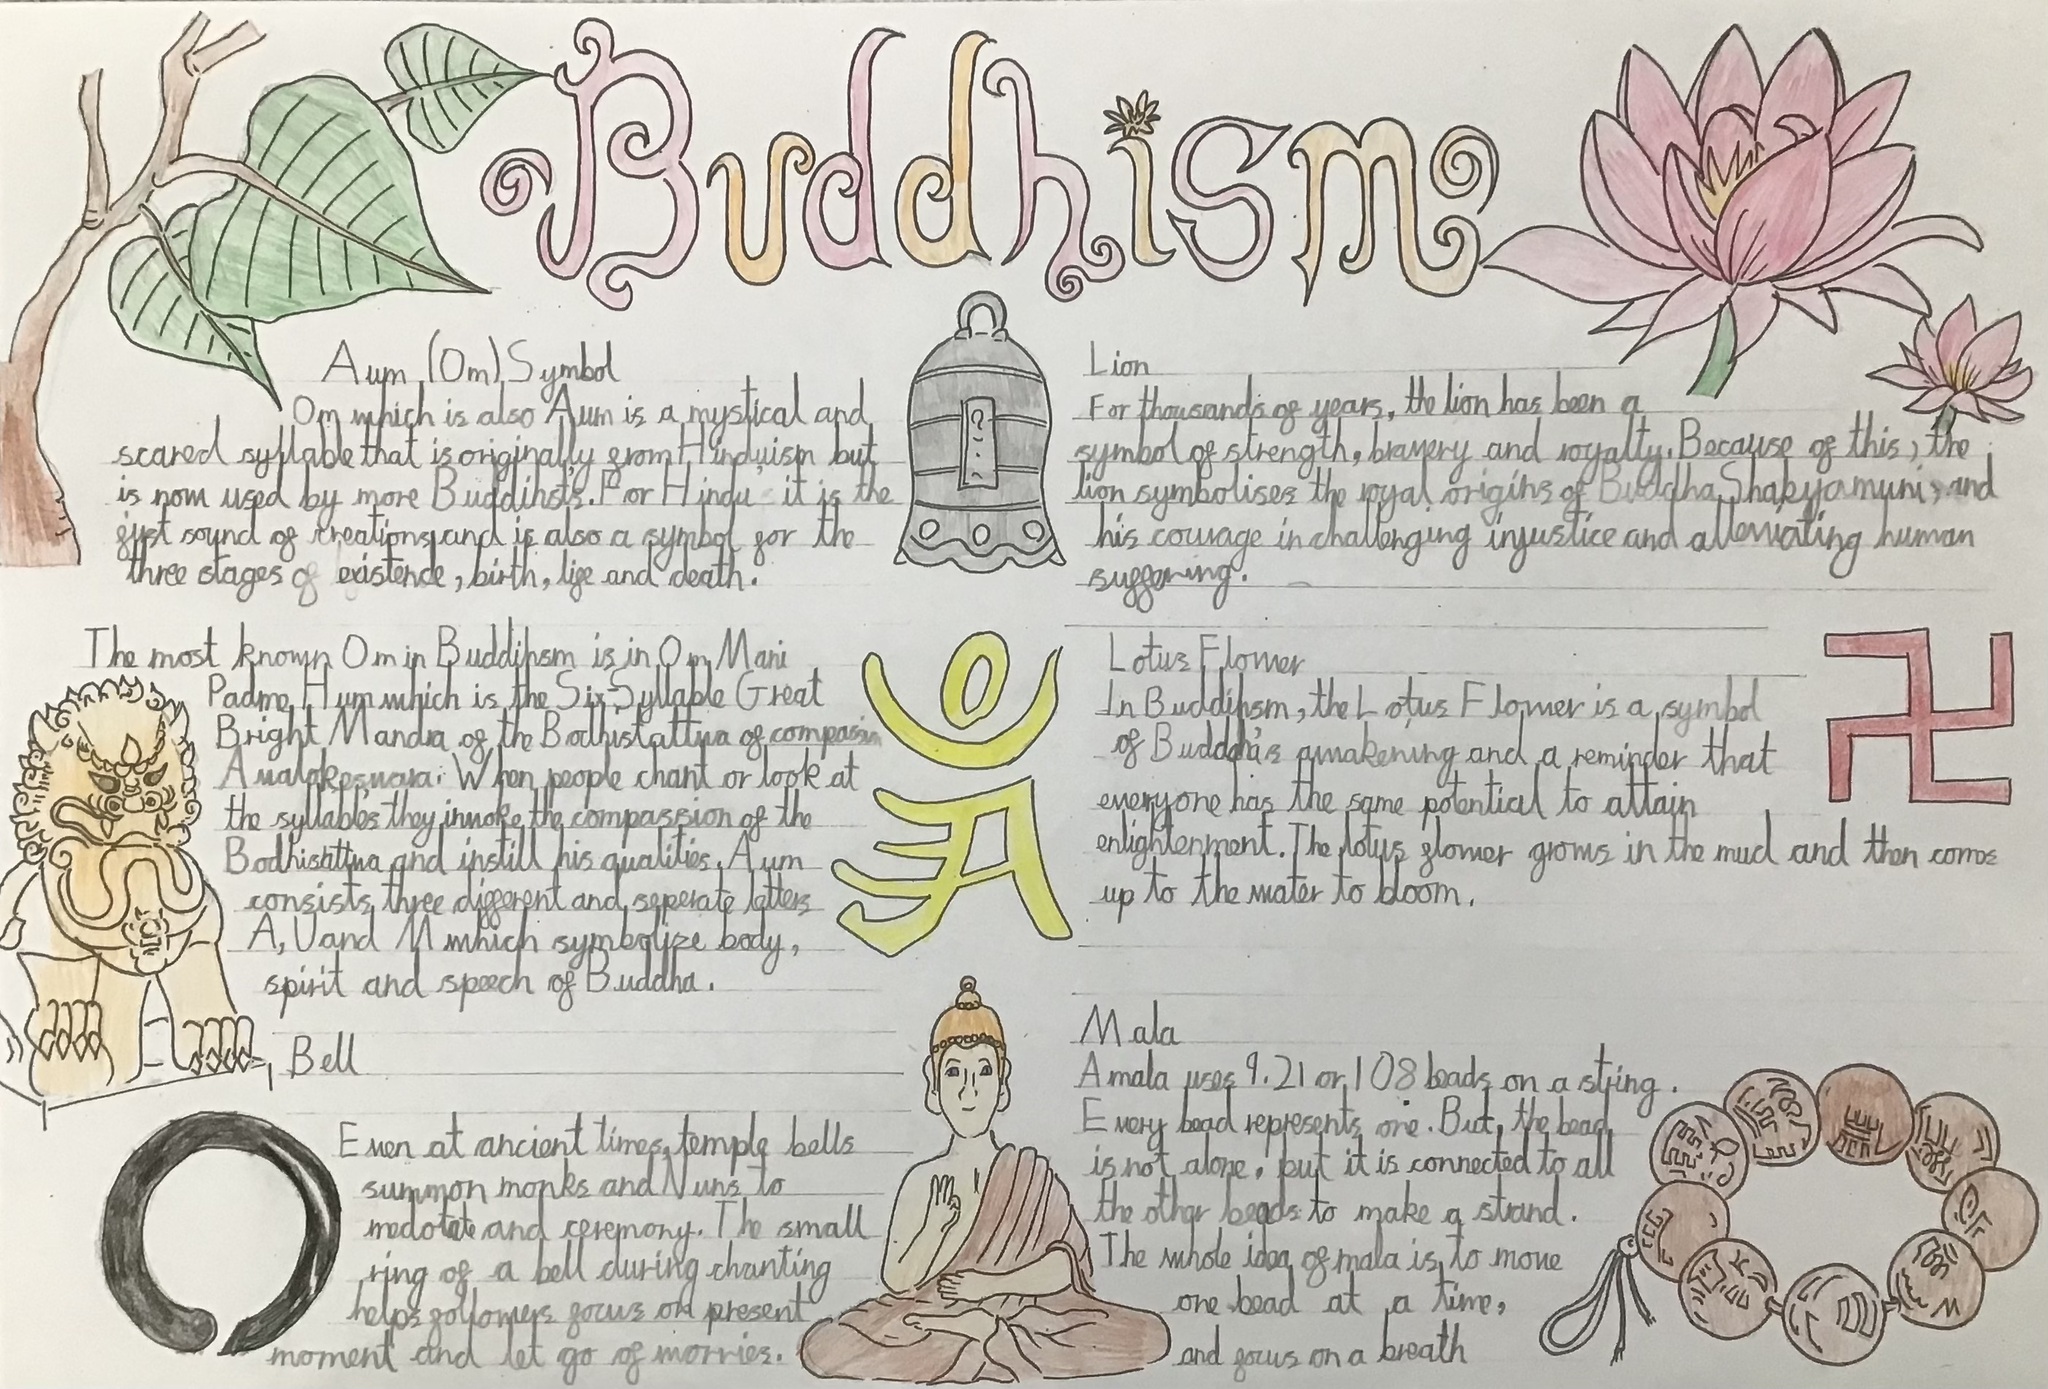 Buddhism
Aum (Om) Symbol
Om which is also Aum is a mystical and
scared syllable that is originally from Hinduism but
is now used by more Buddihsts. For Hindu's it is the
fist sound of creations and is also a symbol for the
three stages of existence, birth, life and death.
The most known Om in Buddihsm is in Om Mani
Padme Hum which is the Six-Syllable Great
Bright Mandra of the Bodhistattva of compassion
Avalokeswara. When people chant or look at
the syllables they invoke the compassion of the
Bodhisattva and instill his qualities. Aum
consists three different and seperate letters
A, U and M which symbolize body,
spirit and speech of Buddha.
Bell
Even at ancient times, temple bells
summon monks and Nuns to
and ceremony. The small
ring of a bell during chanting
helps followers focus on present
moment and let go of worries.
Lion
For thousands of years, the lion has been a
symbol of strength, bravery and royalty. Because of this, the
lion symbolises the royal origins of Buddha Shakyamuni, and
his courage in challenging injustice and alleviating human
suffering.
Lotus Flower
In Buddihsm, the Lotus Flower is a symbol
of Buddda's awakening and a reminder that
everyone has the same potential to attain
enlightenment. The lotus flower grows in the mud and then comes
up to the water to bloom.
Mala
A mala uses 9.21 or 108 beads on a string.
Every bead represents one. But, the bead
is not alone, but it is connected to all
the other beads to make a strand.
The whole idea of mala is to move
one bead at a time,
and focus on a breath